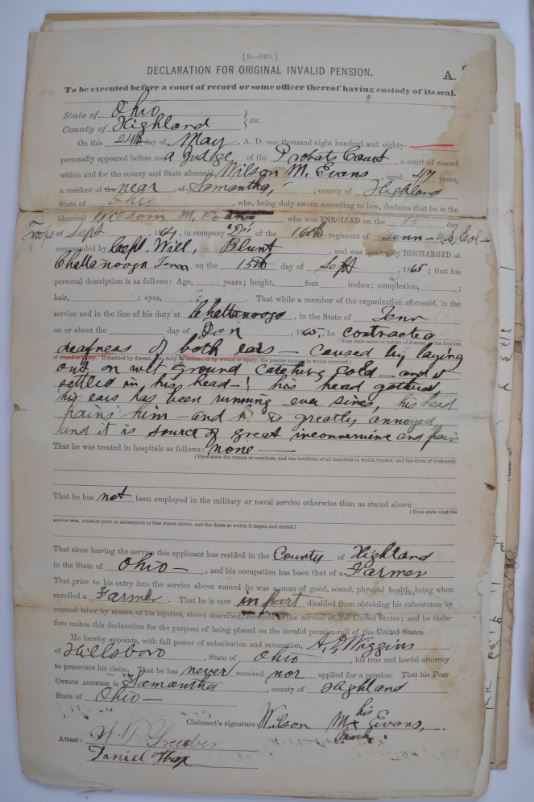 [3—010.]
DECLARATION FOR ORIGINAL INVALID PENSION.
A.
To be executed before a court of record or some officer thereof having custody of its seal.
State of Ohio
County of Highland } ss:
On this 24th day of May A. D. one thousand eight hundred and eighty-
personally appeared before me a Judge of the Probate Court, a court of record
within and for the county and State aforesaid, Wilson M. Evans, aged 47 years,
a resident of near Samantha, county of Highland
State of Ohio, who, being duly sworn according to law, declares that he is the
identical M. Evans who was ENROLLED on the day
of Sept, in company of the 16th regiment of Tenn - U.S. Col -
Troops
commanded by Capt. Will, Blunt and was honorably DISCHARGED at
Chattanooga Tenn on the 15th day of Sept; that his
personal description is as follows: Age, years; height, feet inches; complexion, ;
hair, ; eyes, . That while a member of the organization aforesaid, in the
service and in the line of his duty at Chattanooga in the State of Tenn
on or about the day of he contracted
deafness of both ears - caused by laying
out on wet ground catching cold - and it
settled in, his head -! his head
his ears has been running ever since, his head
pains him - and it is greatly annoyed
and it is source of great inconvenience and pain
That he was treated in hospitals as follows: none
(Here state the names or numbers, and the localities of all hospitals in which treated, and the dates of treatment.
That he has not been employed in the military or naval service otherwise than as stated above
(Here state what the
service was, whether prior or subsequent to that stated above, and the dates at which it began and ended.)
That since leaving the service this applicant has resided in the County of Highland
in the State of Ohio -, and his occupation has been that of a Farmer
That prior to his entry into the service above named he was a man of good, sound, physical health, being when
enrolled a Farmer. That he is now in part disabled from obtaining his subsistence by
manual labor by reason of his injuries, above described, received in the service of the United States; and he there-
fore makes this declaration for the purpose of being placed on the invalid pension roll of the United States.
He hereby appoints, with full power of substitution and revocation, Wiggins
of Hillsboro, State of Ohio, his true and lawful attorney
to prosecute his claim. That he has never received nor applied for a pension. That his POST
OFFICE ADDRESS is Samantha, county of Highland
State of Ohio -
Claimant's signature Wilson M x Evans,
his
mark
Attest:
Daniel